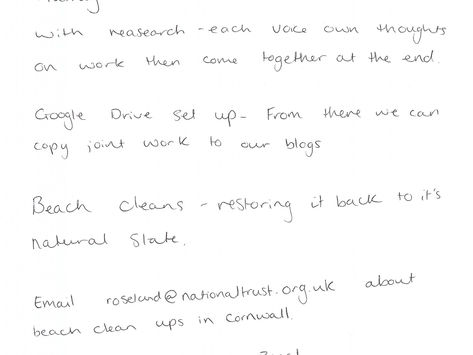 with reasearch - each voice own thoughts
on work then come together at the end.
Google Drive set up - From there we can
copy joint work to our blogs
Beach cleans - restoring it back to it's
natural state.
Email roseland@nationaltrust.org.uk about
beach clean ups in Cornwall.